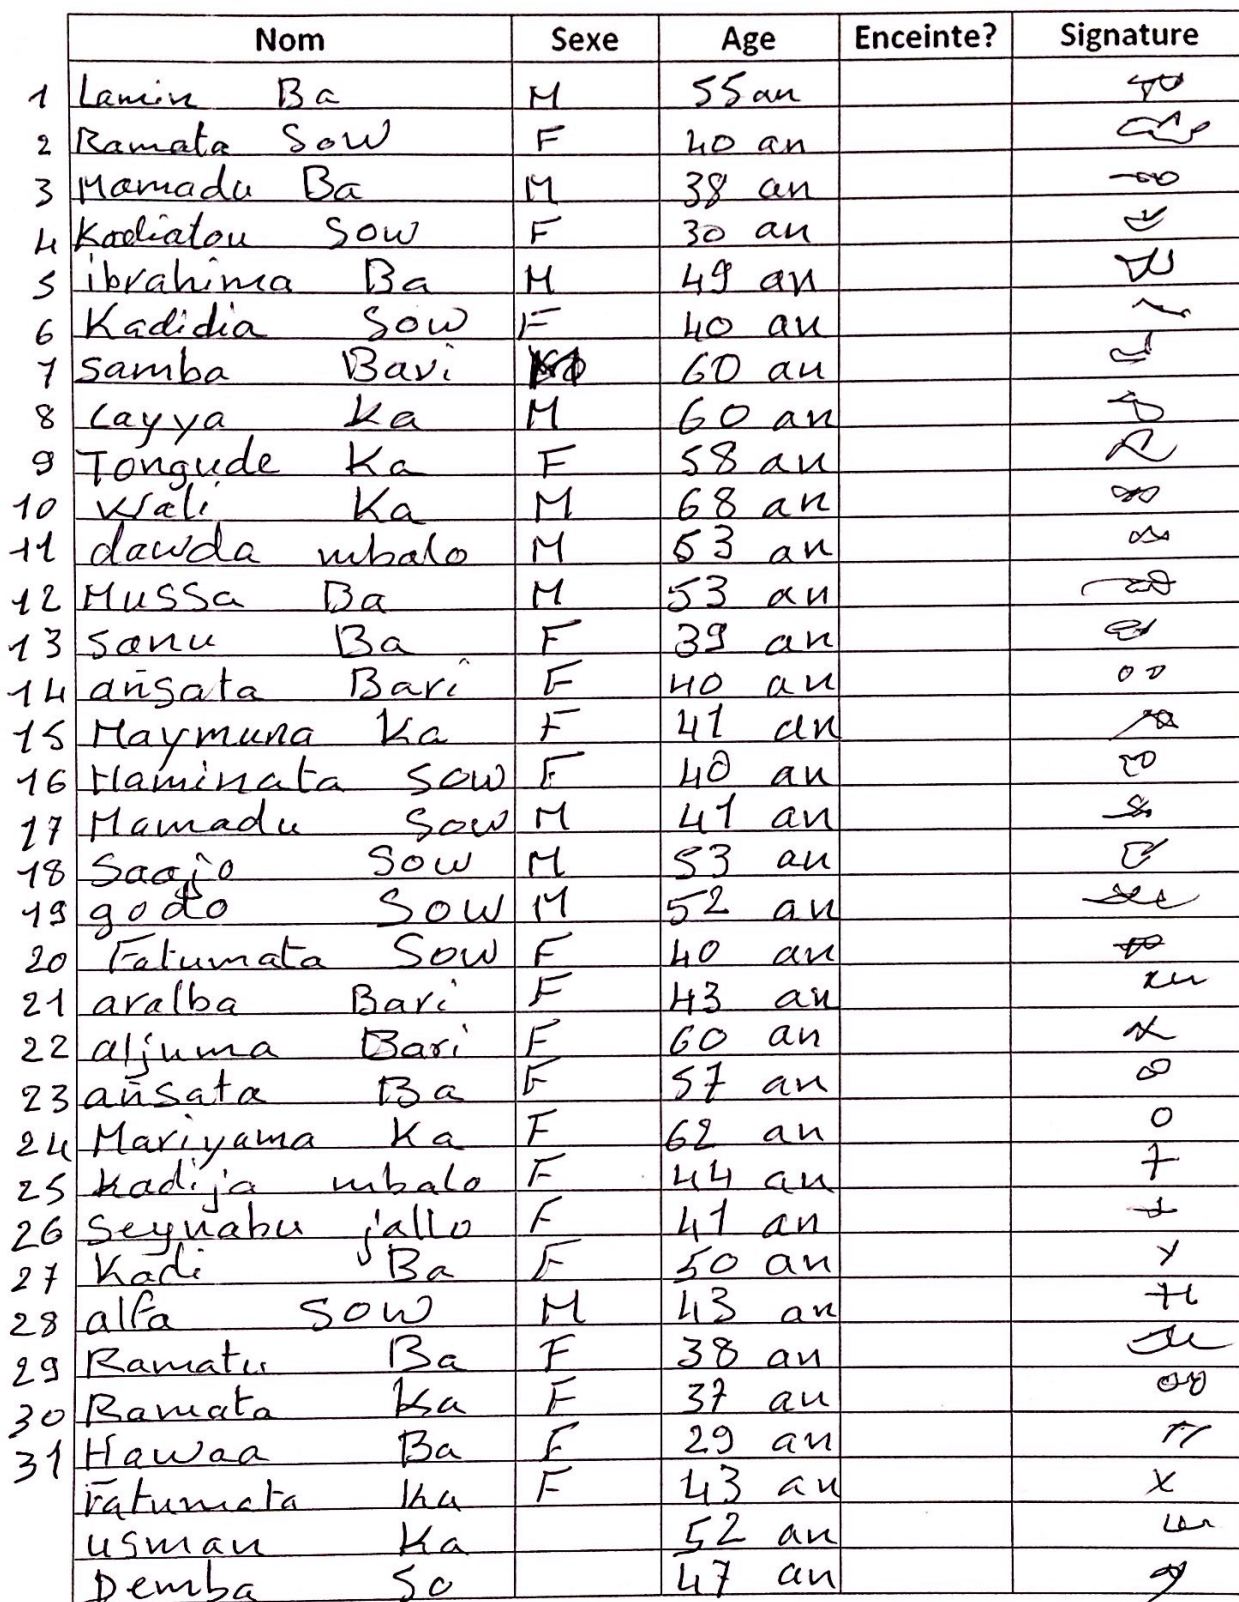 Nom Sexe Age Enceinte? Signature
1 Lamin Ba M 55 an
2 Ramata Sow F 40 an
3 Mamadu Ba M 38 an
4 Kadiatou Sow F 30 an
5 ibrahima Ba M 49 an
6 Kadidia Sow F 40 an
7 Samba Bari 60 an
8 Layya Ka M 60 an
9 Tongude Ka F 58 an
10 Wali Ka M 68 an
11 dawda mbalo M 53 an
12 Mussa Ba M 53 an
13 Sanu Ba F 39 an
14 añsata Bari F 40 an
15 Maymuna Ka F 41 an
16 Haminata Sow F 40 an
17 Mamadu Sow M 41 an
18 Saajo Sow M 53 an
19 godo Sow M 52 an
20 Fatumata Sow F 40 an
21 aralba Bari F 43 an
22 aljuma Bari F 60 an
23 añsata Ba F 57 an
24 Mariyama Ka F 62 an
25 Kadija mbalo F 44 an
26 Seynabu jallo F 41 an
27 Kadi Ba F 50 an
28 alfa Sow M 43 an
29 Ramatu Ba F 38 an
30 Ramata Ka F 37 an
31 Hawaa Ba F 29 an
Fatumata Ka F 43 an X
usman Ka 52 an
Demba So 47 an